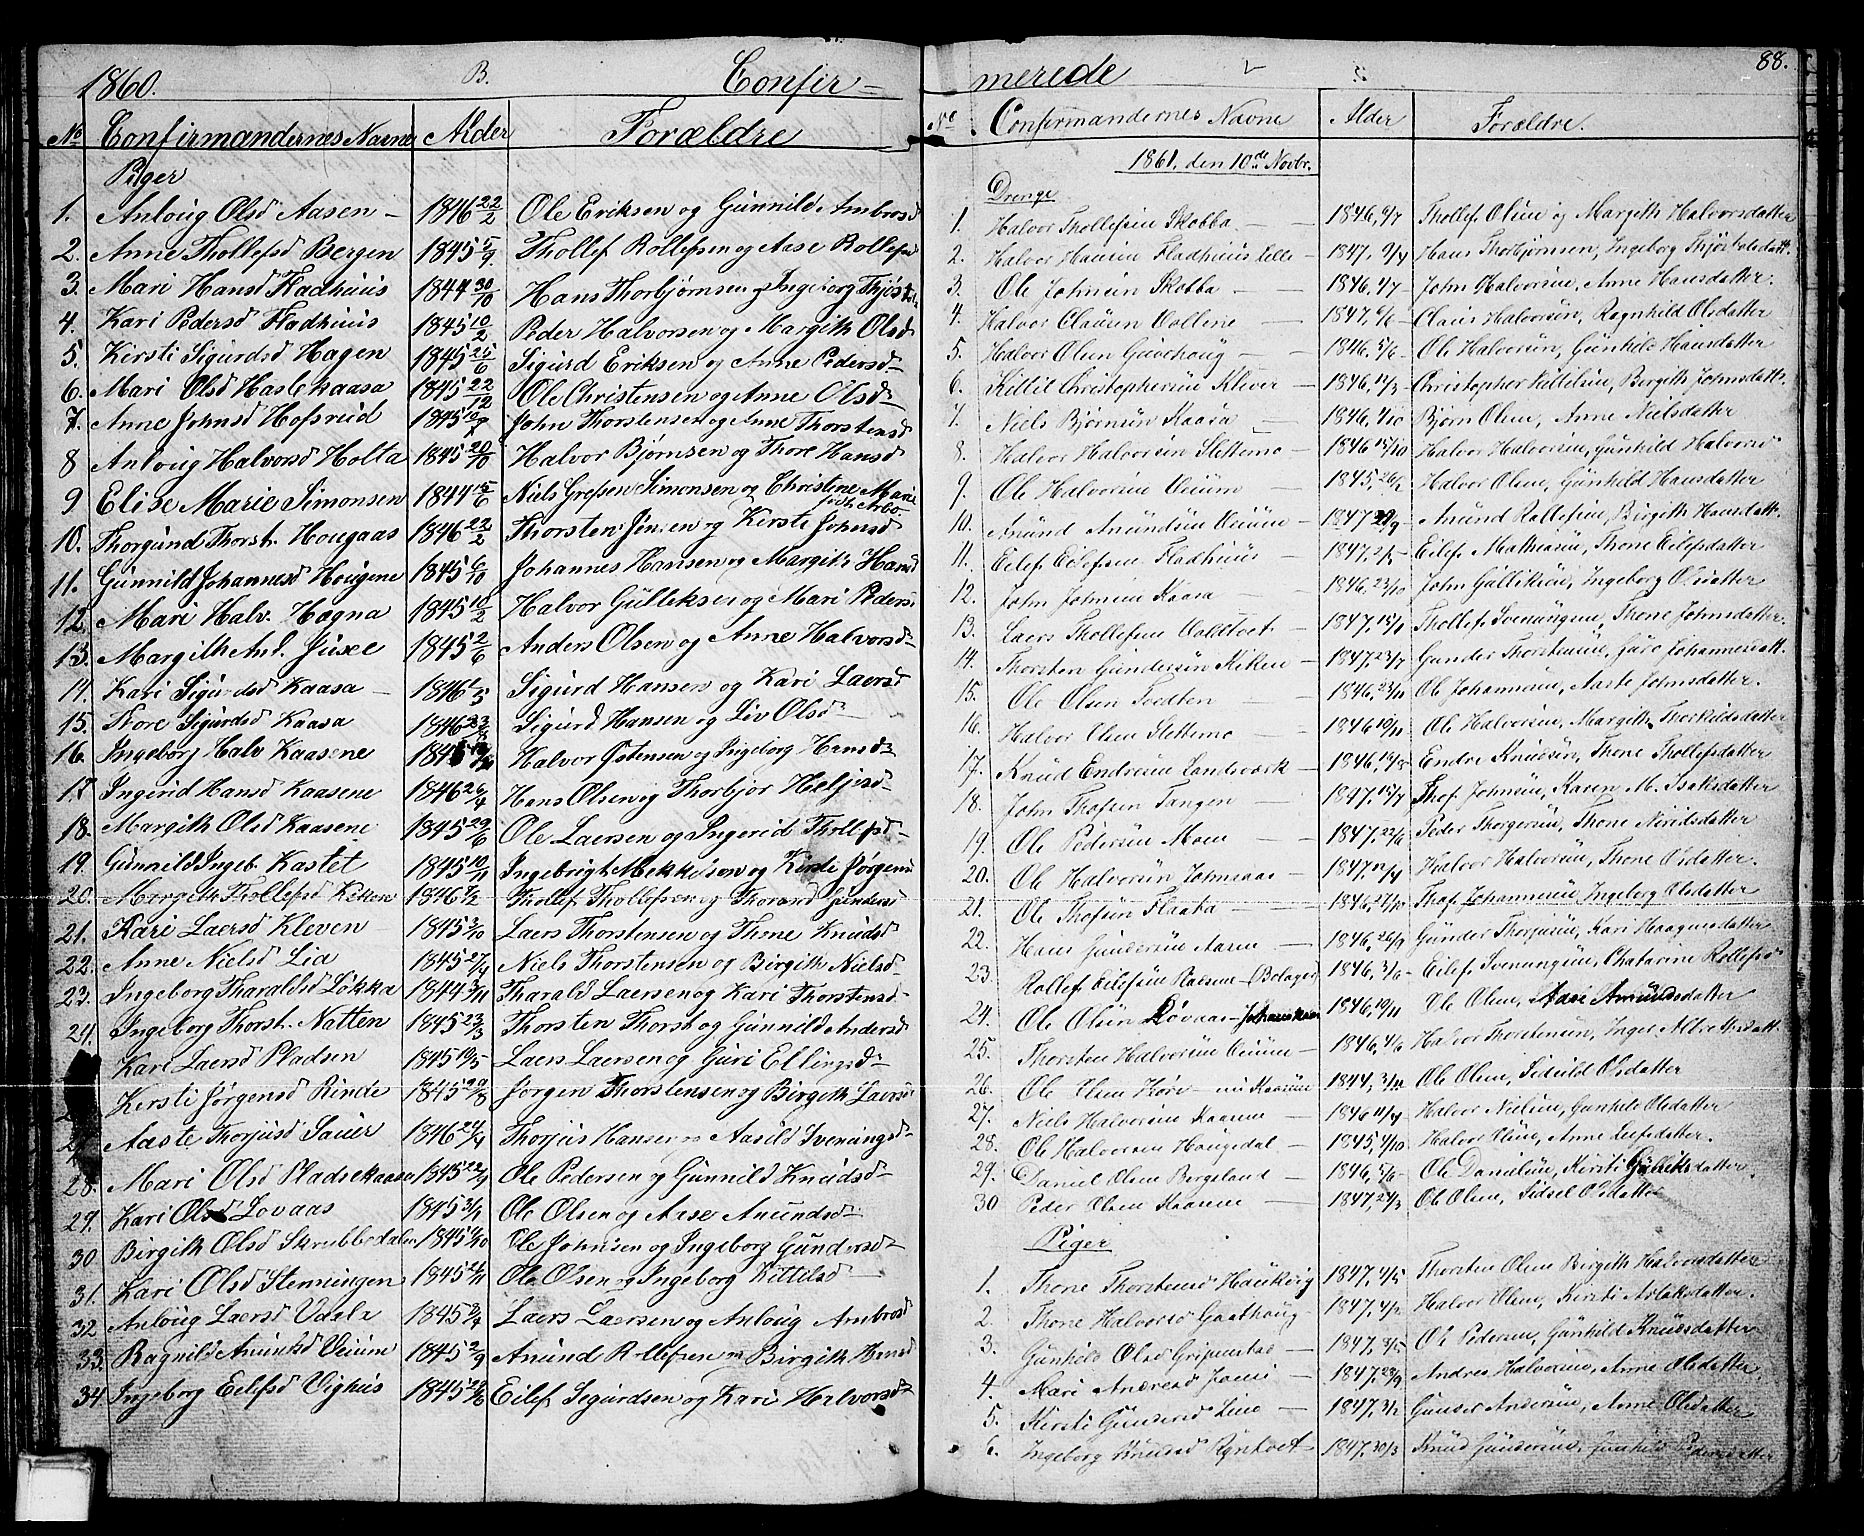 1860. B. Confir-
No Confirmandernes Navne Alder Forældre
Piger
1. Anloug Olsd Aasen - 1846 22/2 Ole Eriksen og Gunnild Ambrosd
2. Anne Thollefsd Bergen 1845 5/9 Thollef Rollefsen og Aase Rollefsd
3. Mari Hansd Fladhuus 1844 30/10 Hans Thorbjørnsen og Ingeborg
4. Kari Pedersd Fladhuus 1845 10/2 Peder Halvorsen og Margith Olsd
5. Kirsti Sigurdsd Hagen 1845 25/6 Sigurd Eriksen og Anne Pedersd-
6. Mari Olsd Haslekaasa 1845 22/12 Ole Christensen og Anne Olsd-
7. Anne Johnsd Hofsrud 1845 John Thorstensen og Anne Thorstensd
8 Anloug Halvorsd Holta 1845 20/10 Halvor Bjørnsen og Thore Hansd
9 Elise Marie Simonsen 1844 15/6 Niels Gresen Simonsen og Christene Marie
10. Thorgund Thorst. Hougaas 1846 22/2 Thorsten Jensen og Kirste Johnsd
11. Gunnild Johannesd Hougene 1845 6/10 Johannes Hansen og Margith Hansd
12. Mari Halv. Hogna 1845 10/2 Halvor Gulleksen og Mari Peders
13. Margith And. Juxe 1845 2/6 Anders Olsen og Anne Halvorsd-
14. Kari Sigurdsd Kaasa - 1846 1/5 Sigurd Hansen og Kari Laersd
15. Thore Sigurdsd Kaasa 1846 Sigurd Hansen og Liv Olsd-
16. Ingeborg Halv Kaasene 1845 Halvor Østensen og Ingeborg Hansd-
17 Ingerid Hansd Kaasene 1846 26/4 Hans Olsen og Thorbjør Heljesd-
18. Margith Olsd Kaasene 1845 29/6 Ole Laersen og Ingerid Thollefsd-
19. Gunnild Ingeb. Kastet 1845 10/11 Ingebrigt Mekkelsen og Kirsti Jørgens
20. Margith Thollefsd Kiken 1846 7/2 Thollef Thollefsen og Thorand Gundersd
21. Kari Laersd Kleven 1845 3/10 Laers Thorstensen og Thone Knudsd
22. Anne Nielsd Lia 1845 27/4 Niels Thorstensen og Birgith Nielsd-
23. Ingeborg Tharaldsd Løkka 1844 3/11 Tharald Laersen og Kari Thorstensd-
24. Ingeborg Thorst. Natten 1845 23/3 Thorsten Thorst og Gunnild Andersd
Kari Laersd Pladsen 1845 19/5 Laers Laersen og Guri Ellingsd-
Kersti Jørgensd Rinde 1845 Jørgen Thorstensen og Birgith Laersd
27. Aaste Thorjusd Sauer 1846 24/4 Thorjus Hansen og Aasild Svenungsd-
28. Mari Olsd Pladsekaasa 1845 22/9 Ole Pedersen og Gunnild Knudsd-
29. Kari Olsd Lovaas 1845 3/1 Ole Olsen og Aase Anundsd-
30 Birgith Olsd Skrubbedalen 1845 Ole Johnsen og Ingeborg Gundersd-
31. Kari Olsd Stenningen 1845 Ole Olsen og Ingeborg Kittilsd-
32 Anloug Laersd Vaala 1845 Laers Laersen og Anloug Ambrosd
33. Ragnild Anundsd Veium 1845 2/9 Anund Rollefsen og Birgith Hansd
34. Ingeborg Eilefsd Vighus 1845 Eilef Sigurdsen og Kari Halvorsd-
merede 88.
No. Confirmandernes Navne Alder Forældre.
1861. den 10de Novbr.
Drenge
1. Halvor Thollefsen Skobba. - 1846, 6/7 Thollef Olsen og Margith Halvorsdatter
2. Halvor Hansen Fladhuus Lille - 1847, 9/4 Hans Thorbjørnsen, Ingeborg
3. Ole Johnsen Skobba - 1846, 4/7 John Halvorsen, Anne Hansdatter.
4. Halvor Clausen Vollene - 1847, 6/6 Claus Halvorsen, Ragnhild Olsdatter
5. Halvor Olsen Guvehoug - 1846, 5/6 Ole Halvorsen, Gunhild Hansdatter
6. Kittil Christophersen Klever - 1846, 14/3 Christopher Kittilsen, Birgith Johnsdatt.
7. Niels Bjørnsen Kaasa - 1846, 4/10 Bjørn Olsen, Anne Nielsdatter
8. Halvor Halvorsen Slettemo - 1846 15/10 Halvor Halvorsen, Gunhild Halvorsd
9. Ole Halvorsen Veium 1845, 26/2 Halvor Olsen, Gunhild Hansdatter
10. Anund Anundsen Veium - 1847 Anund Rollefsen, Birgith Hansdatt.
11. Eilef Eilefsen Fladhuus - 1847, 2/5 Eilef Mathisen, Thone Eilefsdatter
12. John Johnsen Kaasa - 1846, 23/10 John Gulliksen, Ingeborg Olsdatter
13. Laers Thollefsen Valdtvet - 1847, 15/1 Thollef Svenungsen, Thone Johnsdatter.
14. Thorsten Gundersen Kiken - 1847, 23/7 Gunder Thorstensen, Guro Johannesdatt.
15. Ole Olsen Tvedten - 1846, 23/11 Ole Johannesen, Aaste Johnsdatter.
16. Halvor Olsen Slettemo - 1846 10/11 Ole Halvorsen, Margith Thorkildsdatter
17. Knud Endresen Landsværk - 1846, 14/8 Endre Knudsen, Thone Thollefsdatter
18. John Thofsen Tangen - 1847, 15/7 Thof Johnsen, Karen M. Isaksdatter
19. Ole Pedersen Moen - 1847, 22/6 Peder Thorgersen, Thone Niridsdatter
20. Ole Halvorsen Johnsaas - 1847, 11/4 Halvor Halvorsen, Thone Olsdatter.
21. Ole Thofsen Flaata - 1846, 27/10 Thof Johannesen, Ingeborg Olsdatter
22. Hans Gundersen Aasen - 1846, 26/9 Gunder Thorjusen, Kari Haagensdatter
23 Rollef Eilefsen Roesmo - Bolager 1846, 3/6 Eilef Svenungsen, Chatarine Rollefsd
24. Ole Olsen Løvaas - 1846, 19/11 Ole Olsen, Aase Amundsdatter
25. Thorsten Halvorsen Veium - 1846, 4/6 Halvor Thorstensen, Inger
26. Ole Olsen Kore - 1844, 3/11 Ole Olsen, Sidseld Olsdatter
27. Niels Halvorsen Kaasene - 1846 11/4 Halvor Nielsen, Gunhild Olsdatter
28. Ole Halvorsen Hougedal - 1845, 4/10 Halvor Olsen, Anne Leifsdatter.
29. Daniel Olsen Bergeland - 1846, 5/6 Ole Danielsen, Kirsti Gulliksdatter.
30 Peder Olsen Kaasene - 1847, 24/3 Ole Olsen, Sidsel Olsdatter
Piger
1. Thone Thorstensd Haukvig 1847, 4/5 Thorsten Olsen Birgith Halvorsdatter
2. Thone Halvorsd Gaasthoug 1847, 4/2 Halvor Olsen, Kirsti Aslaksdatter.
3. Gunhild Olsd Gripenstad - 1847, 3/5 Ole Pedersen, Gunhild Knudsdatter
4. Mari Andresd 1847, 29/9 Andres Halvorsen, Anne Olsdatter.
5. Kirsti Gundersd Lime - 1847, 3/2 Gunder Andersen, Anne Olsdatter
6. Ingeborg Knudsd 1847, 30/3 Knud Gundersen, Gunhild Pedersdatter